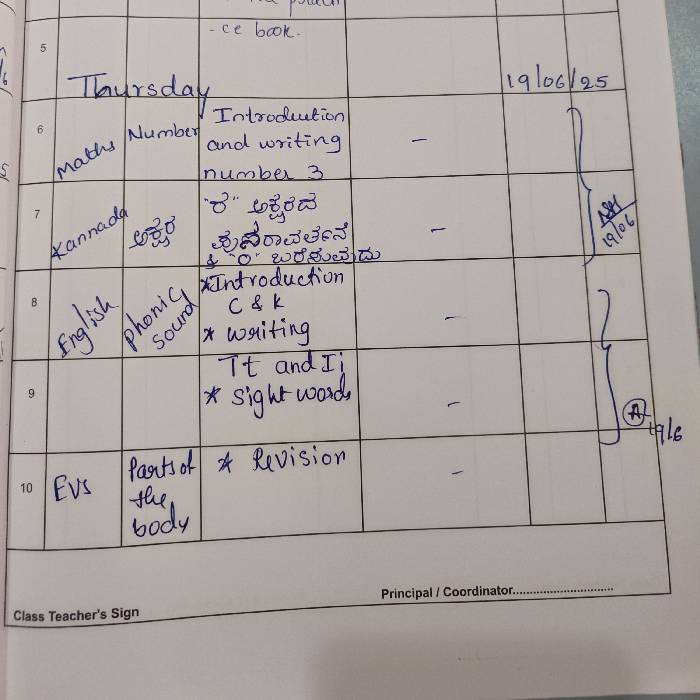 5
- ce book.
Thursday
19/06/25
6
Maths
Number
Introduction
and writing
number 3
-
7
Kannada
ಅಕ್ಷರ
"ರ" ಅಕ್ಷರದ
ಪುನರಾವರ್ತನೆ
& "0" ಬರೆಸುವುದು
-
19/06
8
English
Phonic
sound
* Introduction
C & k
* writing
-
9
Tt and Ii
* sight words
-
A
19/6
10
EVS
Parts of
the
body
* Revision
-
Principal / Coordinator
Class Teacher's Sign